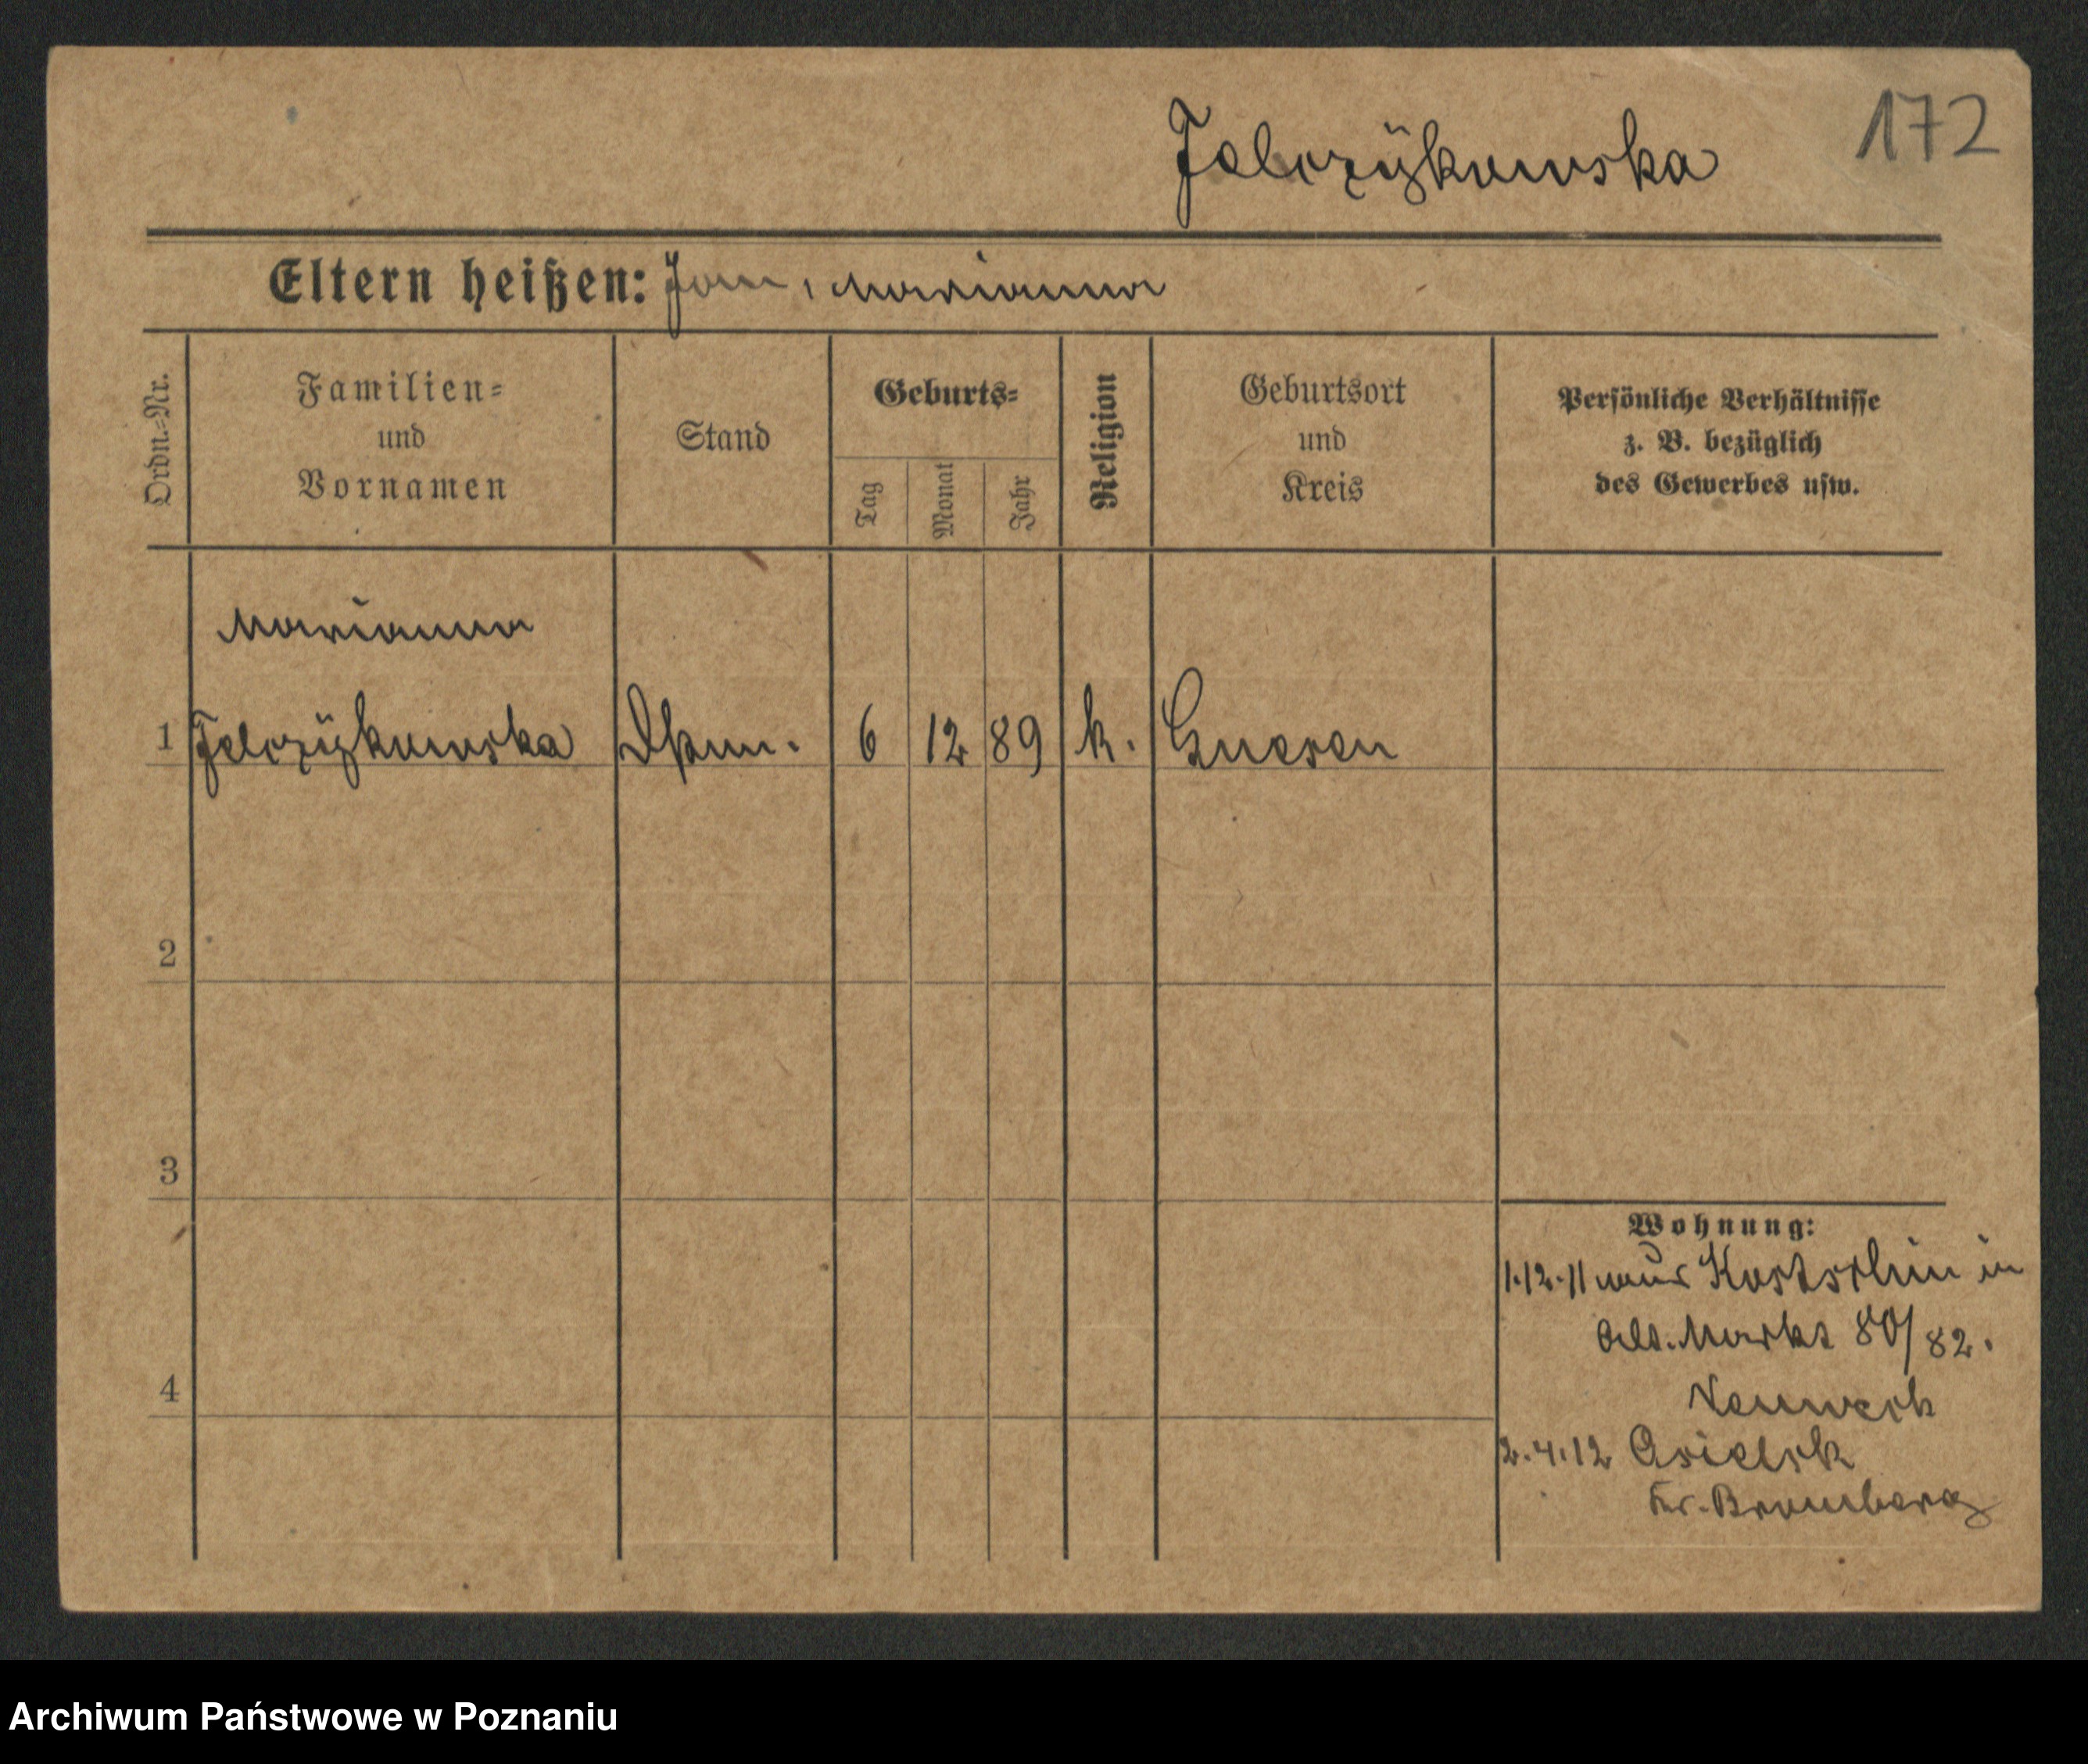 172
Jelczÿkowska
Eltern heißen: Jan, Marianna
Ordn.-Nr.
Familien-
und
Vornamen
Stand
Geburts-
Tag
Monat
Jahr
Religion
Geburtsort
und
Kreis
Persönliche Verhältnisse
z. B. bezüglich
des Gewerbes usw.
Marianna
1 Jelczÿkowska 6 12 89 k. Gnesen
2
3
Wohnung:
1.12.11 aus Kostschin in
Alt. Markt 80/82.
4
2.4.12
Kr. Bromberg
Archiwum Państwowe w Poznaniu